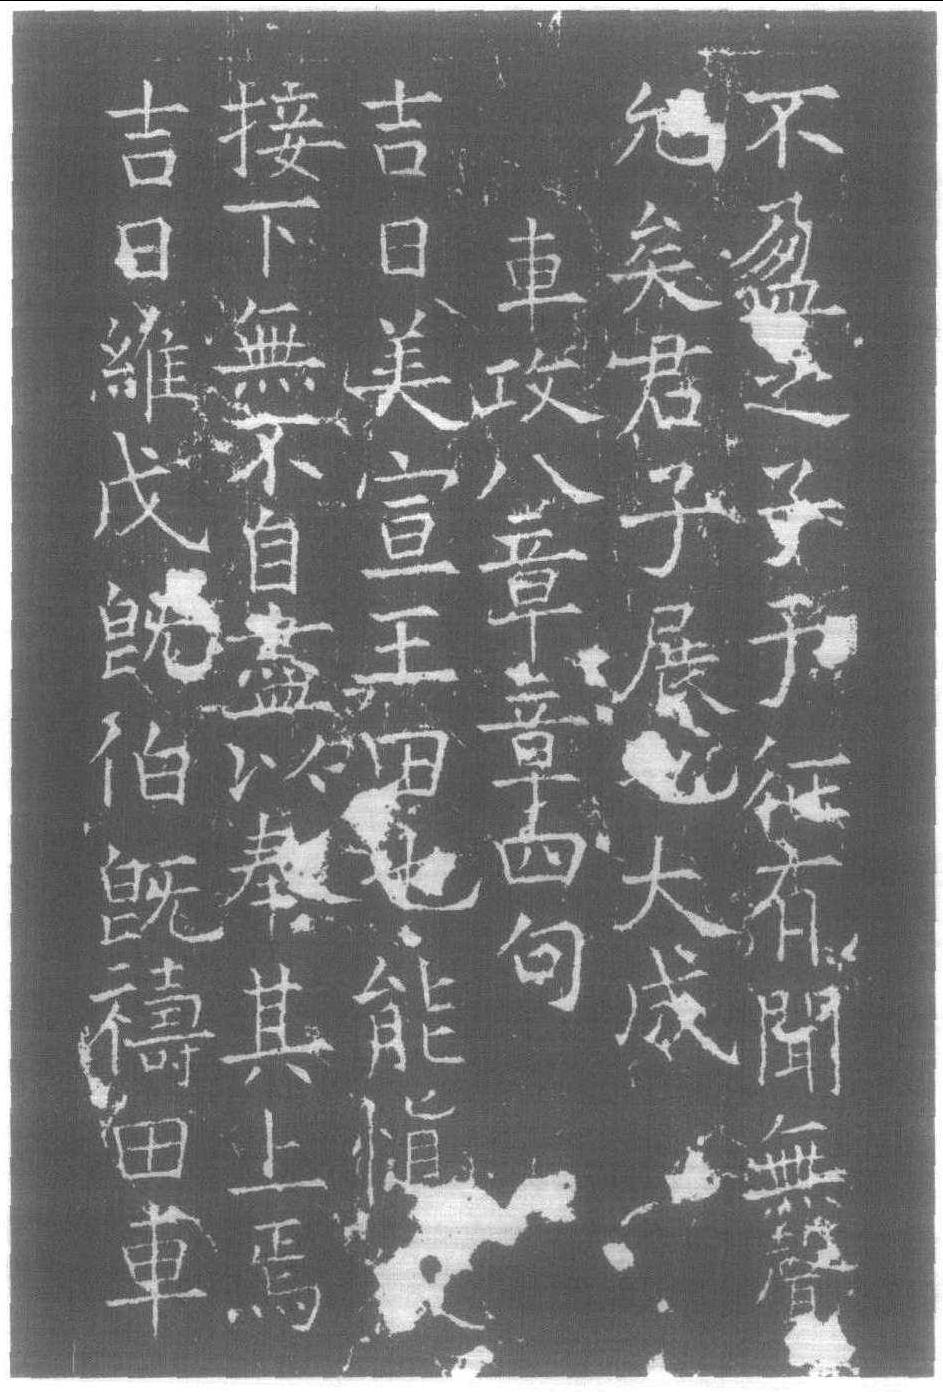 不盈之子于征有聞無聲
允矣君子展也大成
車攻八章章四句
吉日美宣王田也能慎
接下無不自盡以奉其上焉
吉日維戊既伯既禱田車